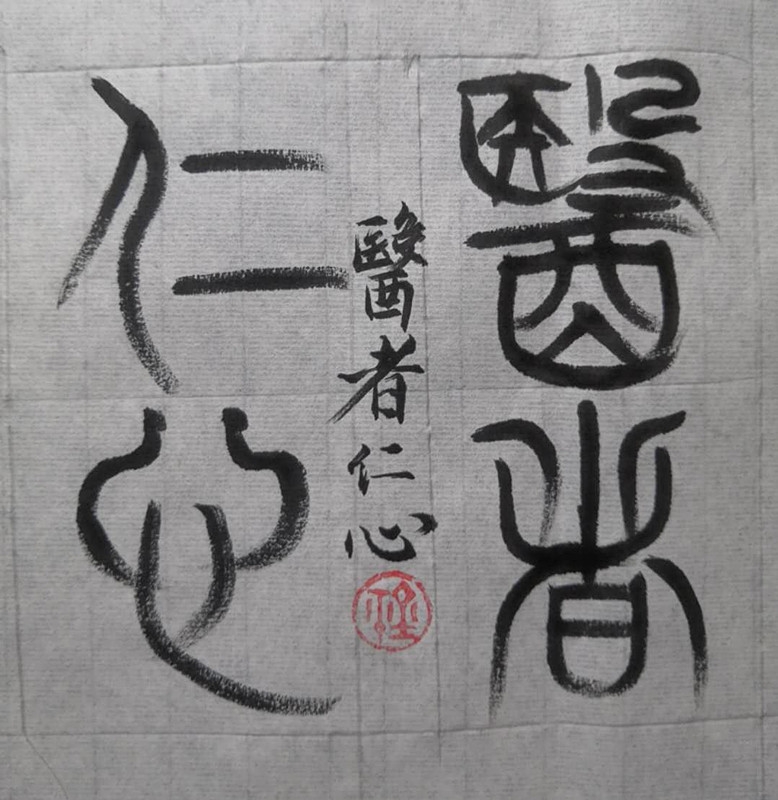 醫者
仁心
醫者仁心